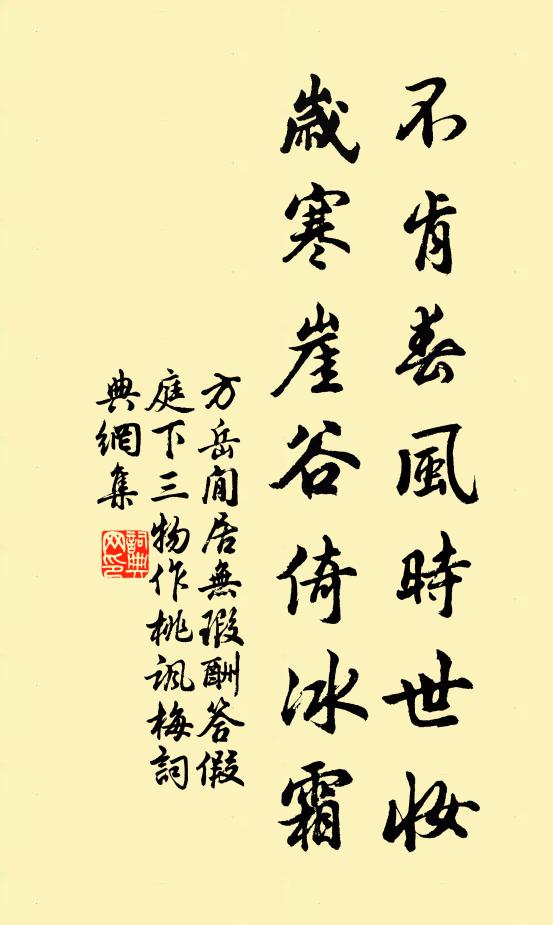 不肯春風時世妝
歲寒崖谷倚冰霜
方岳閒居無瑕酬答假
庭下三物作桃諷梅詞
典網集
詞典
网印